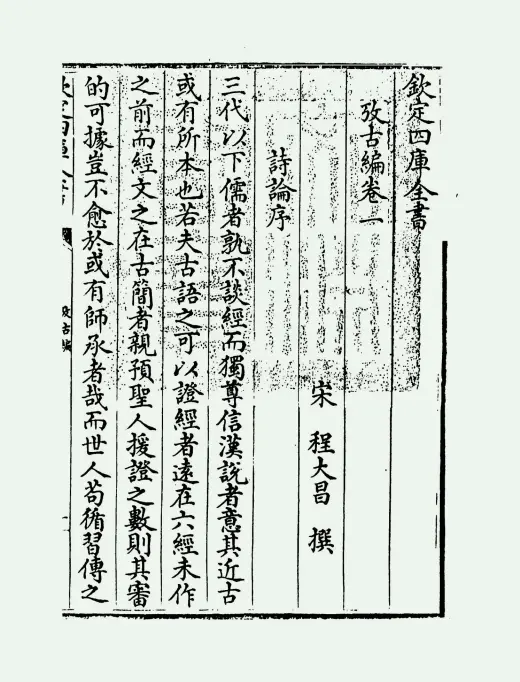 欽定四庫全書
攷古編卷一
宋 程大昌 撰
詩論序
三代以下儒者孰不談經而獨尊信漢說者意其近古
或有所本也若夫古語之可以證經者遠在六經未作
之前而經文之在古簡者親預聖人援證之數則其審
的可據豈不愈於或有師承者哉而世人苟循習傳之